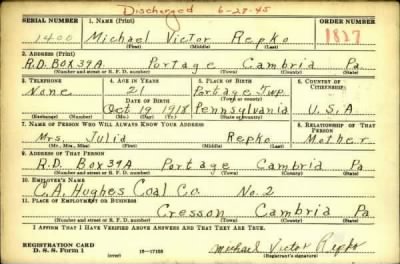 Discharged 6-27-45
SERIAL NUMBER 1. NAME (Print) ORDER NUMBER
1400 Michael Victor Repko 1827
(First) (Middle) (Last)
2. ADDRESS (Print)
R.D. BOX 39A Portage Cambria Pa
(Number and street or R. F. D. number) (Town) (County) (State)
3. TELEPHONE 4. AGE IN YEARS 5. PLACE OF BIRTH 6. COUNTRY OF CITIZENSHIP
None 21 Portage Twp.
(Town or county)
DATE OF BIRTH
Oct 19 1918 Pennsylvania U.S.A
(Exchange) (Number) (Mo.) (Day) (Yr.) (State or country)
7. NAME OF PERSON WHO WILL ALWAYS KNOW YOUR ADDRESS 8. RELATIONSHIP OF THAT PERSON
Mrs. Julia Repko Mother
(Mr., Mrs., Miss) (First) (Middle) (Last)
9. ADDRESS OF THAT PERSON
R.D. BOX 39A Portage Cambria Pa
(Number and street or R. F. D. number) (Town) (County) (State)
10. EMPLOYER'S NAME
C.A. Hughes Coal Co. No. 2
11. PLACE OF EMPLOYMENT OR BUSINESS
Cresson Cambria Pa
(Number and street or R. F. D. number) (Town) (County) (State)
I AFFIRM THAT I HAVE VERIFIED ABOVE ANSWERS AND THAT THEY ARE TRUE.
REGISTRATION CARD
D. S. S. Form 1 (over) 16-17105 Michael Victor Repko
(Registrant's signature)